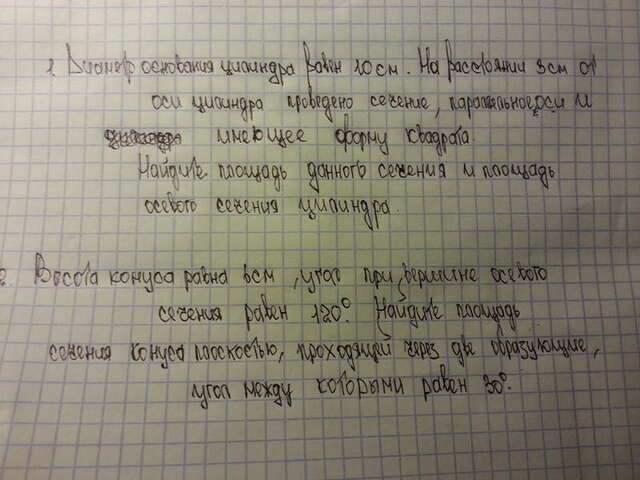 1. Диаметр основания цилиндра равен 10 см. На расстоянии 3 см от
оси цилиндра проведено сечение, параллельное оси и
имеющее форму квадрата.
Найдите площадь данного сечения и площадь
осевого сечения цилиндра.
2. Высота конуса равна 6 см, угол при вершине осевого
сечения равен 120°. Найдите площадь
сечения конуса плоскостью, проходящей через две образующие,
угол между которыми равен 30°.